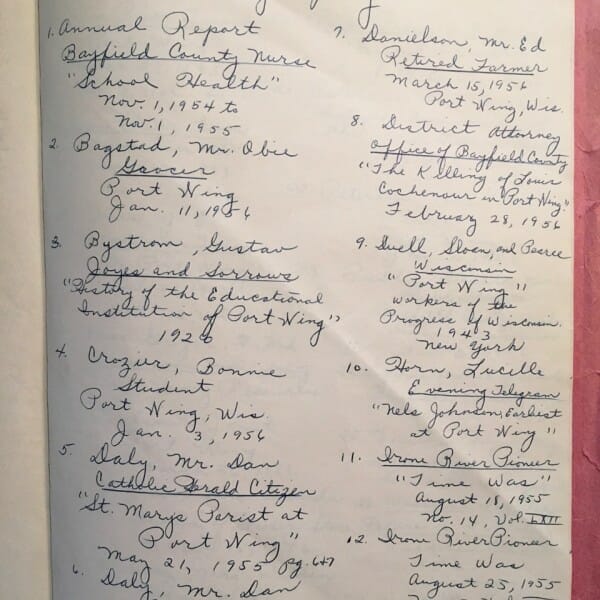 1. Annual Report
Bayfield County Nurse
"School Health"
Nov. 1, 1954 to
Nov. 1, 1955
2. Bagstad, Mr. Obie
Grocer
Port Wing
Jan. 11, 1956
3. Bystrom, Gustav
Joyes and Sorrows
"History of the Educational
Institution of Port Wing"
1920
4. Crozier, Bonnie
Student
Port Wing, Wis.
Jan. 3, 1956
5. Daly, Mr. Dan
Catholic Herald Citizen
"St. Marys Parist at
Port Wing"
May 21, 1955 pg. 6+7
6. Daly, Mr. Dan
7. Danielson, Mr. Ed
Retired Farmer
March 15, 1956
Port Wing, Wis.
8. District Attorney
Office of Bayfield County
"The Killing of Louis
Cochenour in Port Wing."
February 28, 1956
9. Duell, Sloan, and Pearce
Wisconsin
"Port Wing"
workers of the
Progress of Wisconsin.
1943
New York
10. Horn, Lucille
Evening Telegram
"Nels Johnson, Earliest
at Port Wing"
11. Irone River Pioneer
"Time Was"
August 18, 1955
No. 14, Vol. LXII
12. Irone River Pioneer
Time Was
August 25, 1955